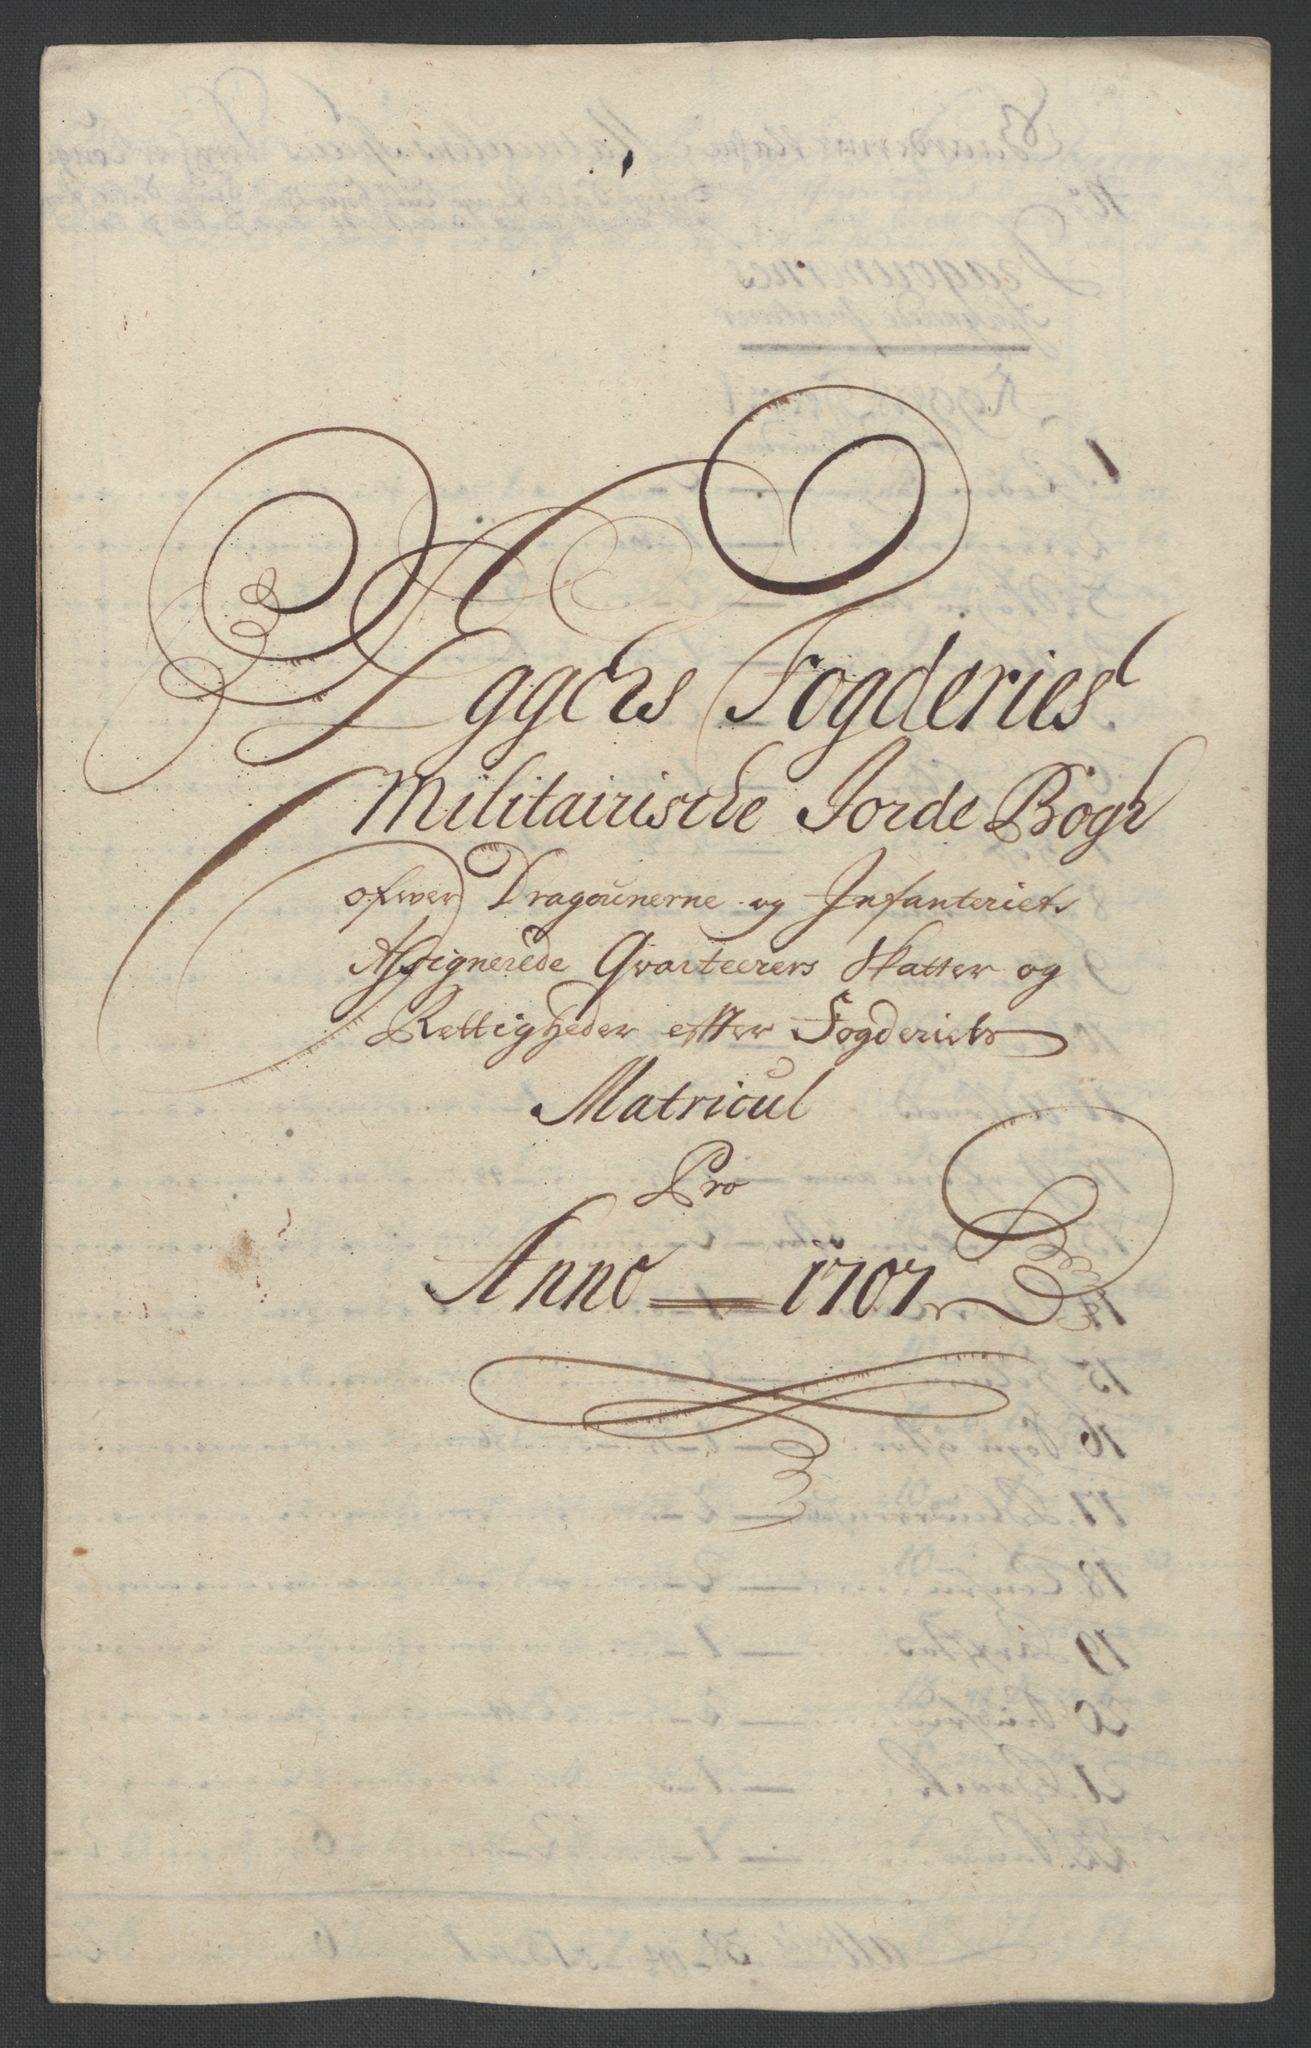 Eggers Fogderies
Militairische Jorde Bogh
ofwer Dragounerne og Infanteriets
Assignerede Qvarteerers Skatter og
Rettigheder effter Fogderiets
Matricul
Pro
Anno 1707